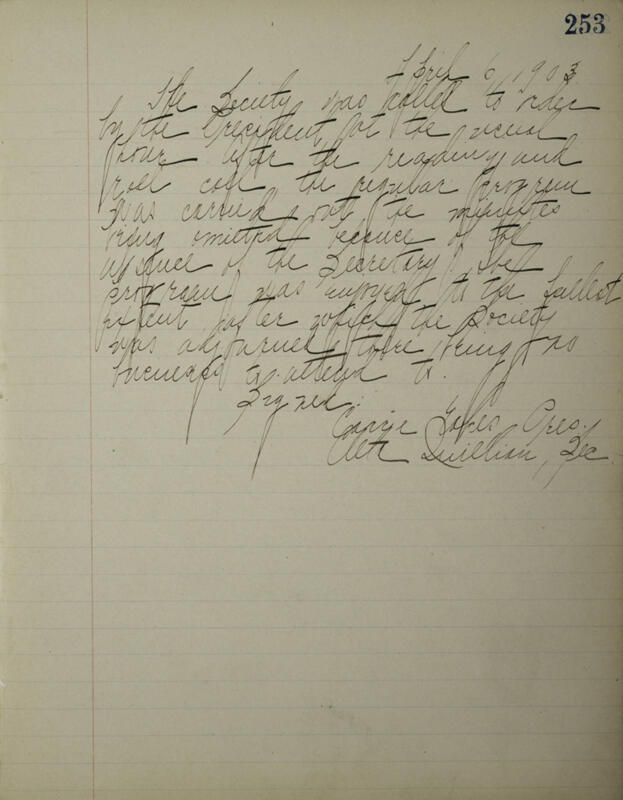 253
April 6, 1903
The Society was called to order
by the President at the usual
hour. After the reading and
roll call the regular program
was carried out, the minutes
being omitted because of the
absence of the Secretary. The
program was enjoyed to the fullest
extent after which the Society
was adjourned there being no
business to attend to.
Signed:
Pres.
Quillian, Sec.